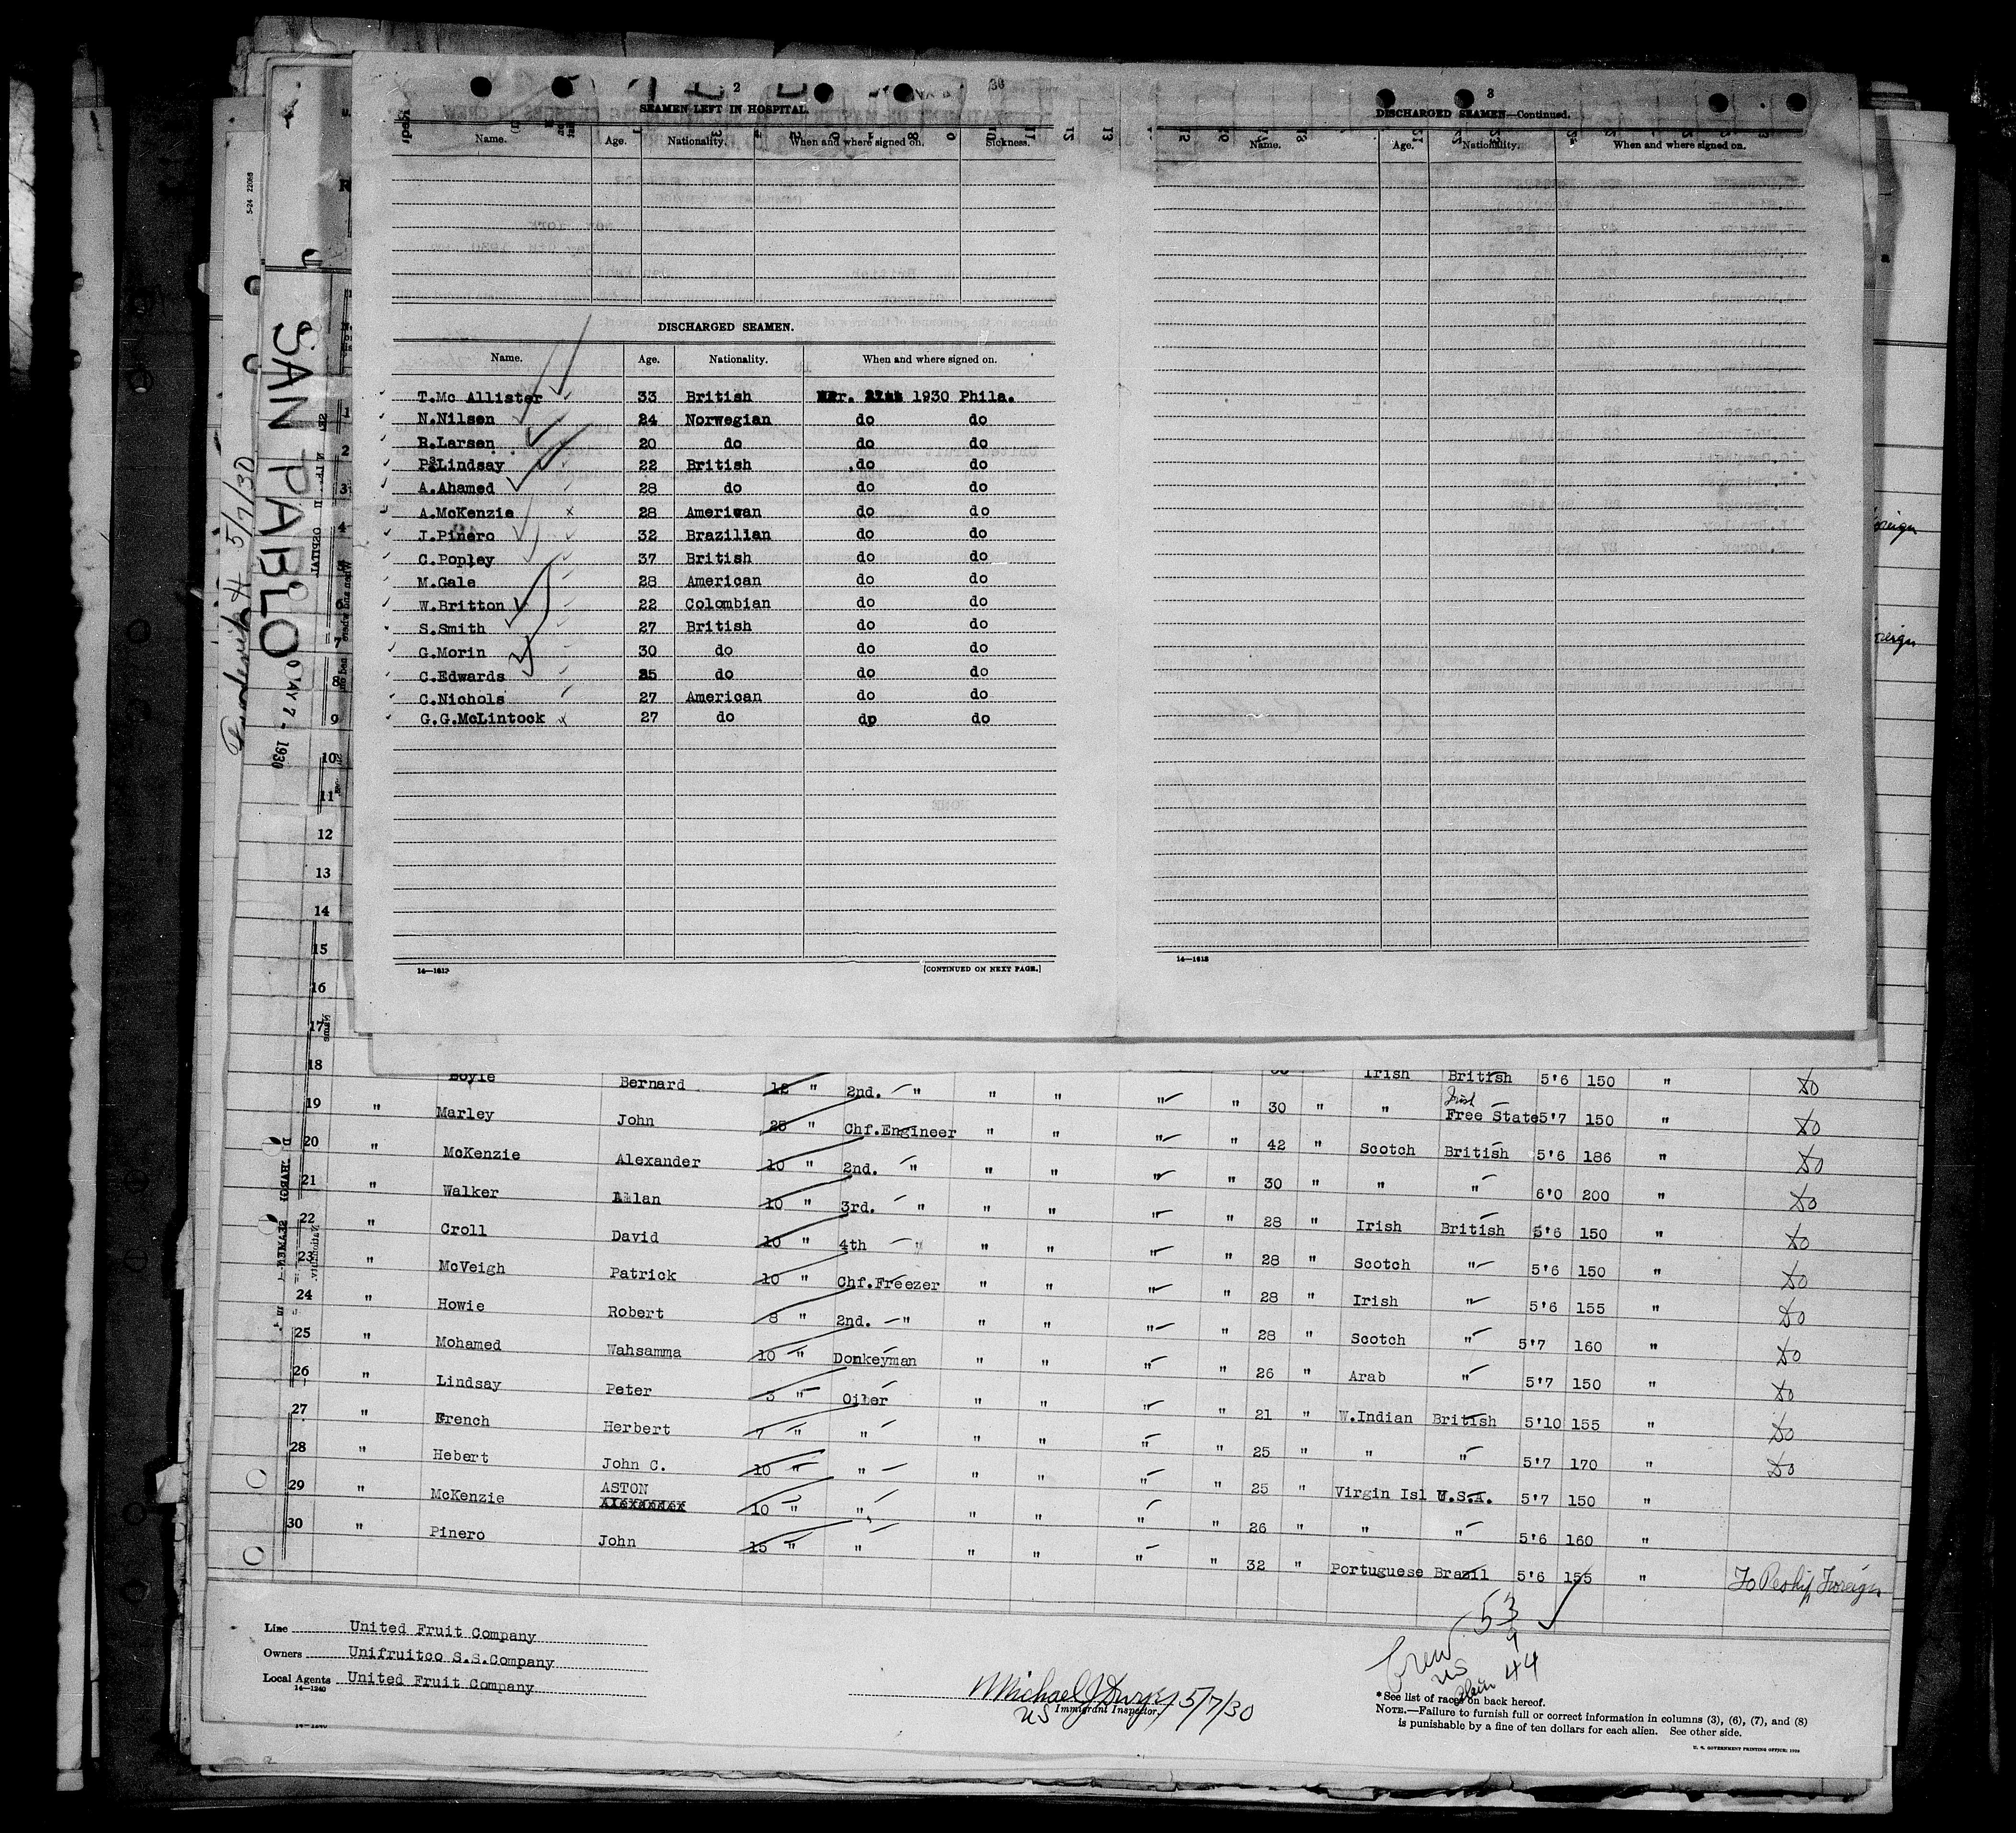 2
SEAMEN LEFT IN HOSPITAL.
Name. Age. Nationality. When and where signed on. Sickness.
DISCHARGED SEAMEN.
Name. Age. Nationality. When and where signed on.
T.Mc Allister 33 British 1930 Phila.
N.Nilsen 24 Norwegian do do
R.Larsen 20 do do do
P.Lindsay 22 British do do
A.Ahamed 28 do do do
A.McKenzie x 28 Ameriwan do do
J.Pinero 32 Brazilian do do
C.Popley 37 British do do
M.Gale 28 American do do
W.Britton 22 Colombian do do
S.Smith 27 British do do
G.Morin 30 do do do
C.Edwards 35 do do do
C.Nichols 27 American do do
G.G.McLintock x 27 do do do
14—1617
[CONTINUED ON NEXT PAGE.]
3
DISCHARGED SEAMEN—Continued.
Name. Age. Nationality. When and where signed on.
14—1618
5-24 22068
SAN PABLO
5/7/30
MAY 7 - 1930
1
2
3
4
6
7
8
9
10
11
12
13
14
15
16
17
18 Boyle Bernard 12 " 2nd. " " " " " Irish British 5'6 150 " do
19 " Marley John 25 " Chf.Engineer " " " " 30 " " Irish Free State 5'7 150 " do
20 " McKenzie Alexander 10 " 2nd. " " " " " 42 " Scotch British 5'6 186 " do
21 " Walker Allan 10 " 3rd. " " " " " 30 " " " 6'0 200 " do
22 " Croll David 10 " 4th " " " " " 28 " Irish British 5'6 150 " do
23 " McVeigh Patrick 10 " Chf.Freezer " " " " 28 " Scotch " 5'6 150 " do
24 " Howie Robert 8 " 2nd. " " " " " 28 " Irish " 5'6 155 " do
25 " Mohamed Wahsamma 10 " Donkeyman " " " " 28 " Scotch " 5'7 160 " do
26 " Lindsay Peter 3 " Oiler " " " " 26 " Arab " 5'7 150 " do
27 " French Herbert 7 " " " " " " 21 " W.Indian British 5'10 155 " do
28 " Hebert John C. 10 " " " " " " 25 " " " 5'7 170 " do
29 " McKenzie ASTON Alexander 10 " " " " " " 25 " Virgin Isl U.S.A. 5'7 150 "
30 " Pinero John 15 " " " " " " 26 " " " 5'6 160 "
32 " Portuguese Brazil 5'6 155 " To Reship Foreign
Line United Fruit Company
Owners Unifruitco S.S.Company
Local Agents United Fruit Company
14—1240
Michael J 5/7/30
US Immigrant Inspector.
Crew 53
US 9
Alien 44
*See list of races on back hereof.
NOTE.—Failure to furnish full or correct information in columns (3), (6), (7), and (8)
is punishable by a fine of ten dollars for each alien. See other side.
U. S. GOVERNMENT PRINTING OFFICE: 1929